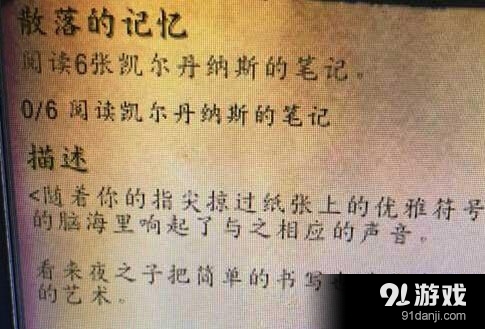 散落的记忆
阅读6张凯尔丹纳斯的笔记。
0/6 阅读凯尔丹纳斯的笔记
描述
<随着你的指尖掠过纸张上的优雅符号
的脑海里响起了与之相应的声音。
看来夜之子把简单的书写
的艺术。
91游戏
91danji.com